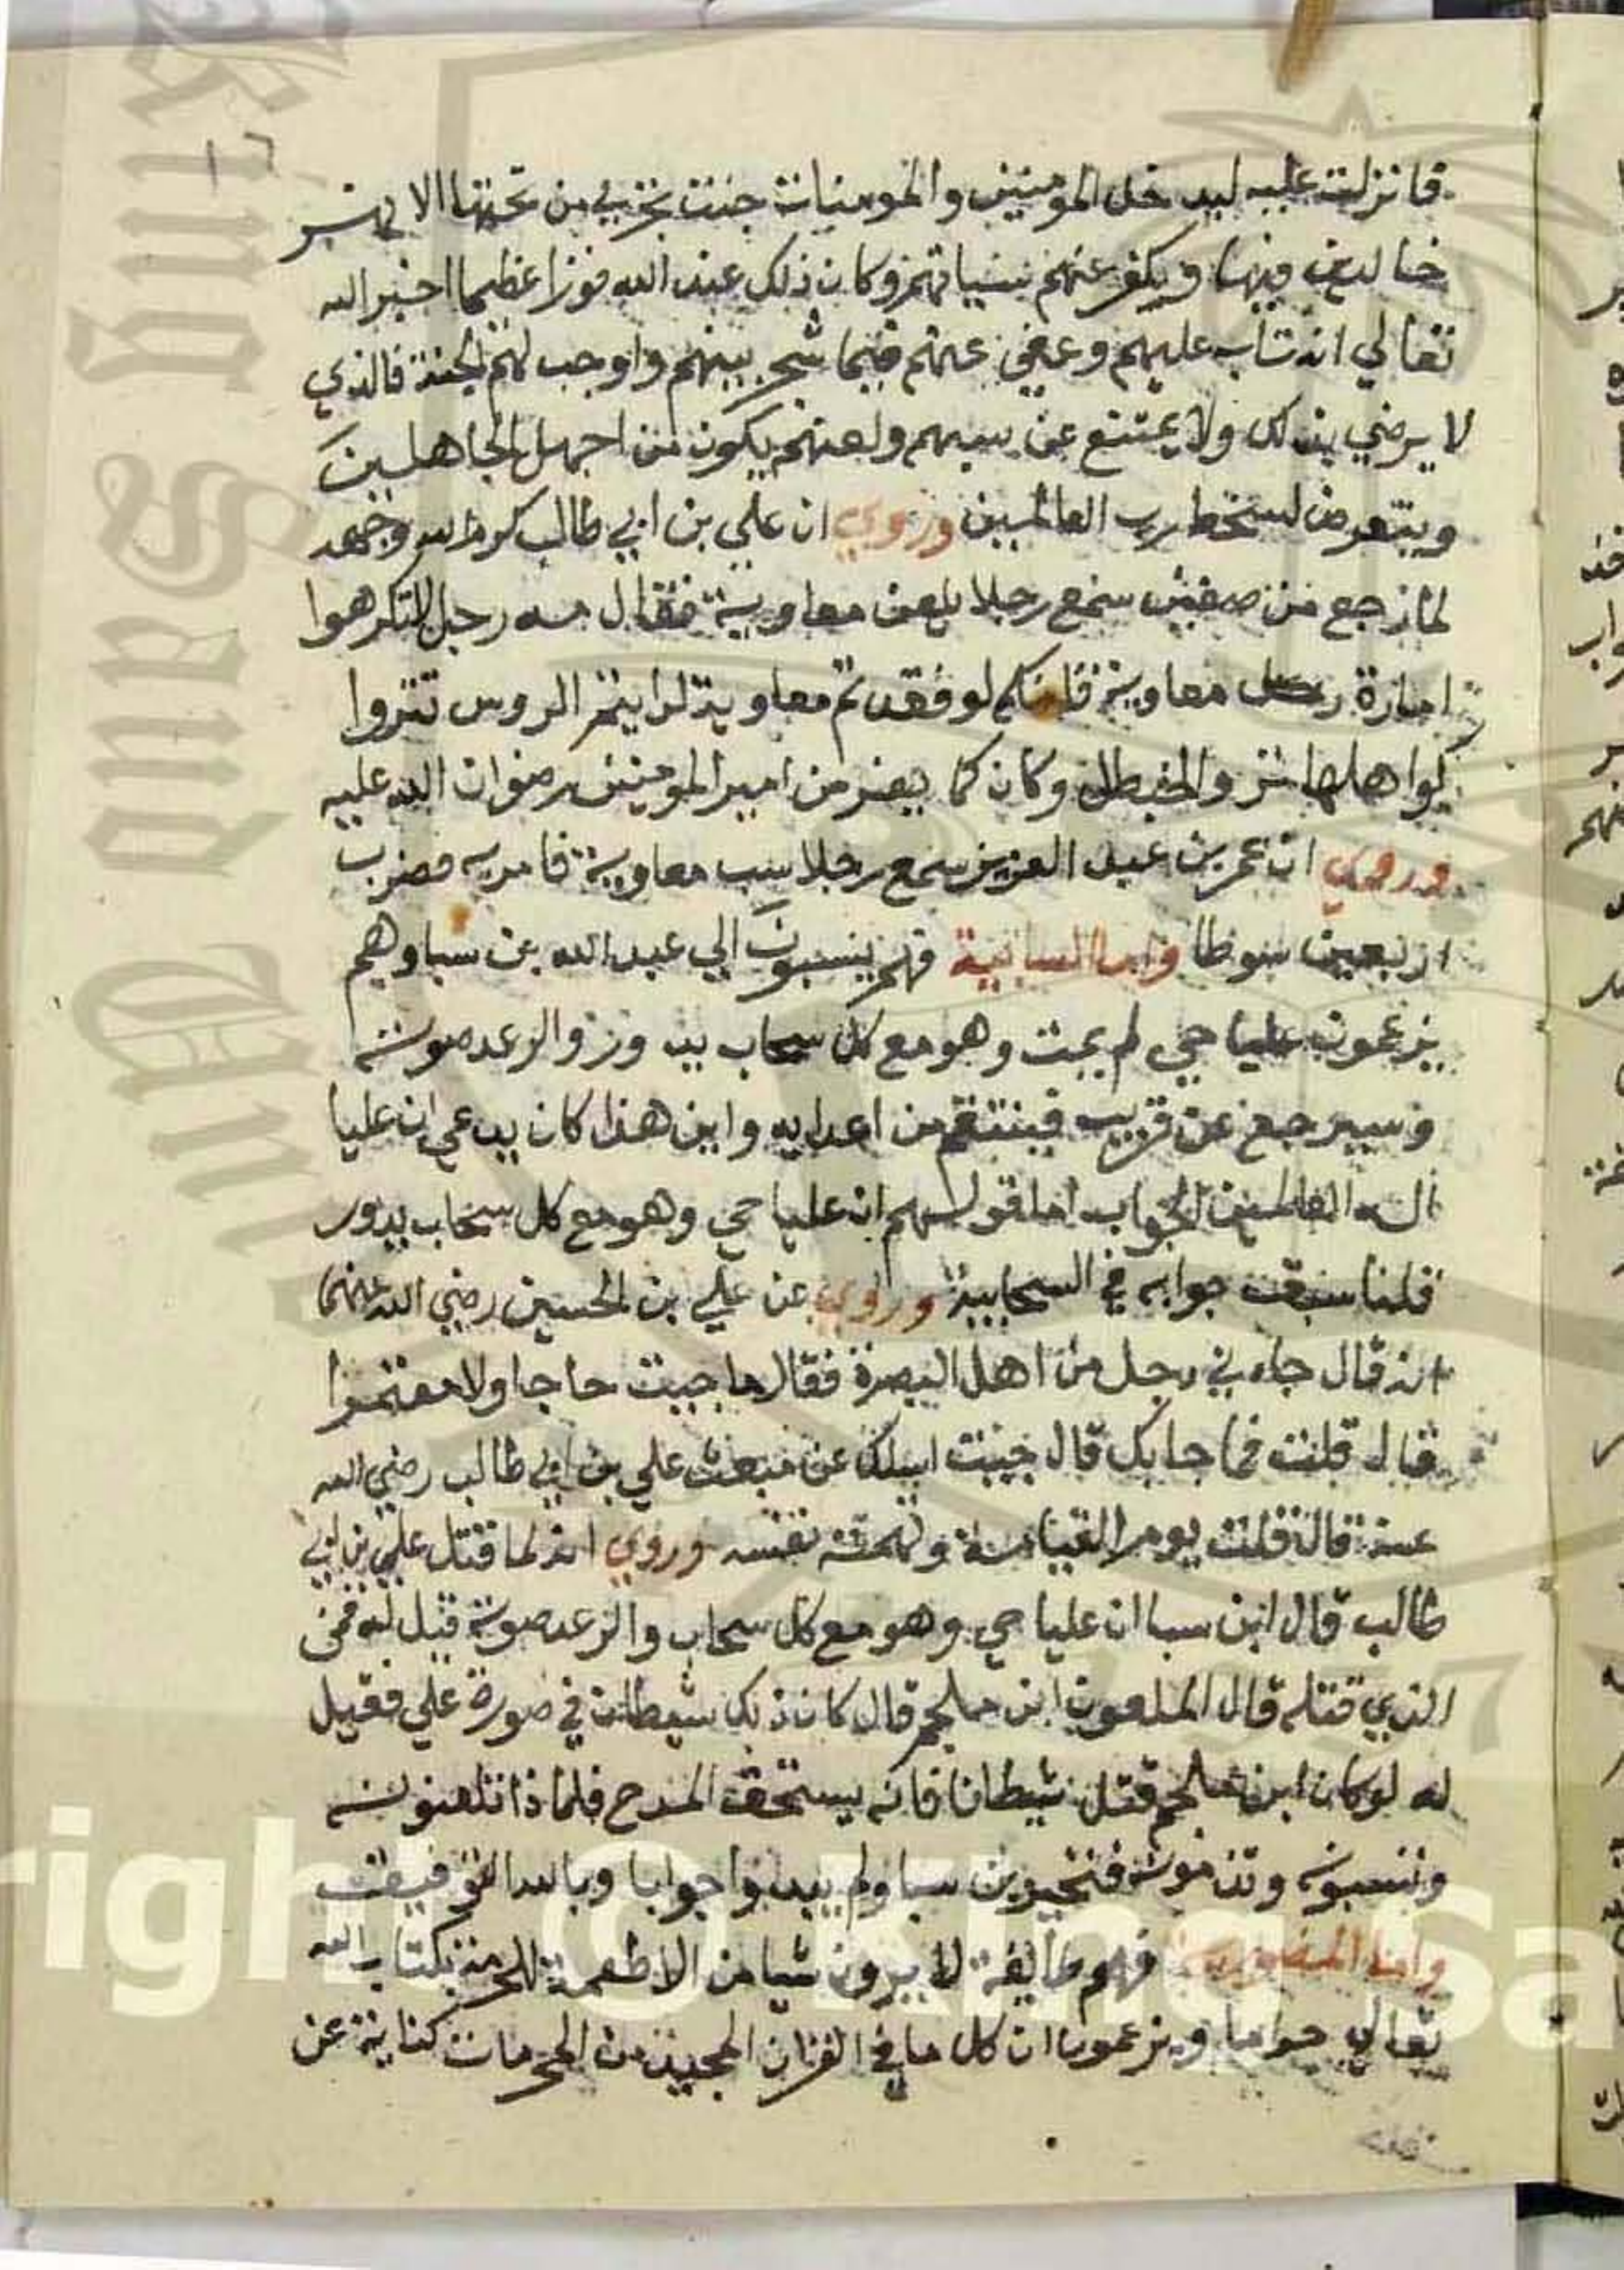 فانزلت عليه ليدخل المومنين والمومنيات جنت تجري من تحتها الانهر
خالدين فيها ويكفر عنهم سياتهم وكان ذلك عند الله فوزا عظيما اخبر الله
تعالي انه تاب عليهم وعفي عنهم فيما شجر بينهم واوجب لهم الجنة فالذي
لا يرضي بذلك ولا يمتنع عن سبهم ولعنهم يكون من اجهل الجاهلين
ويتعرض لسخط رب العالمين وروي ان علي بن ابي طالب كرم الله وجهه
لما رجع من صفين سمع رجلا يلعن معاوية فقال مه رجل لا تكرهوا
امارة معاوية فانكم لو فقدتم معاوية لرايتم الروس تنزوا
كواهلها والحنظل وكان كما بصر من امير المومنين رضوان الله عليه
وروي ان عمر بن عبد العزيز سمع رجلا سب معاوية فامر به فضرب
اربعين سوطا واما السبائية فهم ينسبون الي عبد الله بن سبا وهم
يزعمون عليا حي لم يمت وهو مع كل سحاب يدور والرعد صوته
وسيرجع عن قريب فينتقم من اعدايه وابن هذا كان يدعي ان عليا
اله العالمين الجواب اما قولهم ان عليا حي وهو مع كل سحاب يدور
قلنا سبقت جوابه في السحابية وروي عن علي بن الحسين رضي الله عنهما
انه قال جاءني رجل من اهل البصرة فقال ما جيت حاجا ولا معتمرا
قال قلت فما جا بك قال جيت اسلك عن مبعث علي بن ابي طالب رضي الله
عنه قال قلت يوم القيامة وتهمته نفسه وروي انه لما قتل علي بن ابي
طالب قال ابن سبا ان عليا حي وهو مع كل سحاب والرعد صوته قيل له فمن
الذي قتله قال الملعون ابن ملجم قال كان ذلك شيطان في صورة علي فقيل
له لو كان ابن ملجم قتل شيطانا فانه يستحق المدح فلماذا تلعنونه
وتسبونه وتذمونه فتحير بن سبا ولم يبدوا جوابا وبالله التوفيق
واما المنصورية فهم طايفة لا يرون شيا من الاطعمة المحرمة بكتاب الله
تعالي حراما ويزعمون ان كل ما في القران المجيد من المحرمات كناية عن
King Saud University
right © King Sa
1957